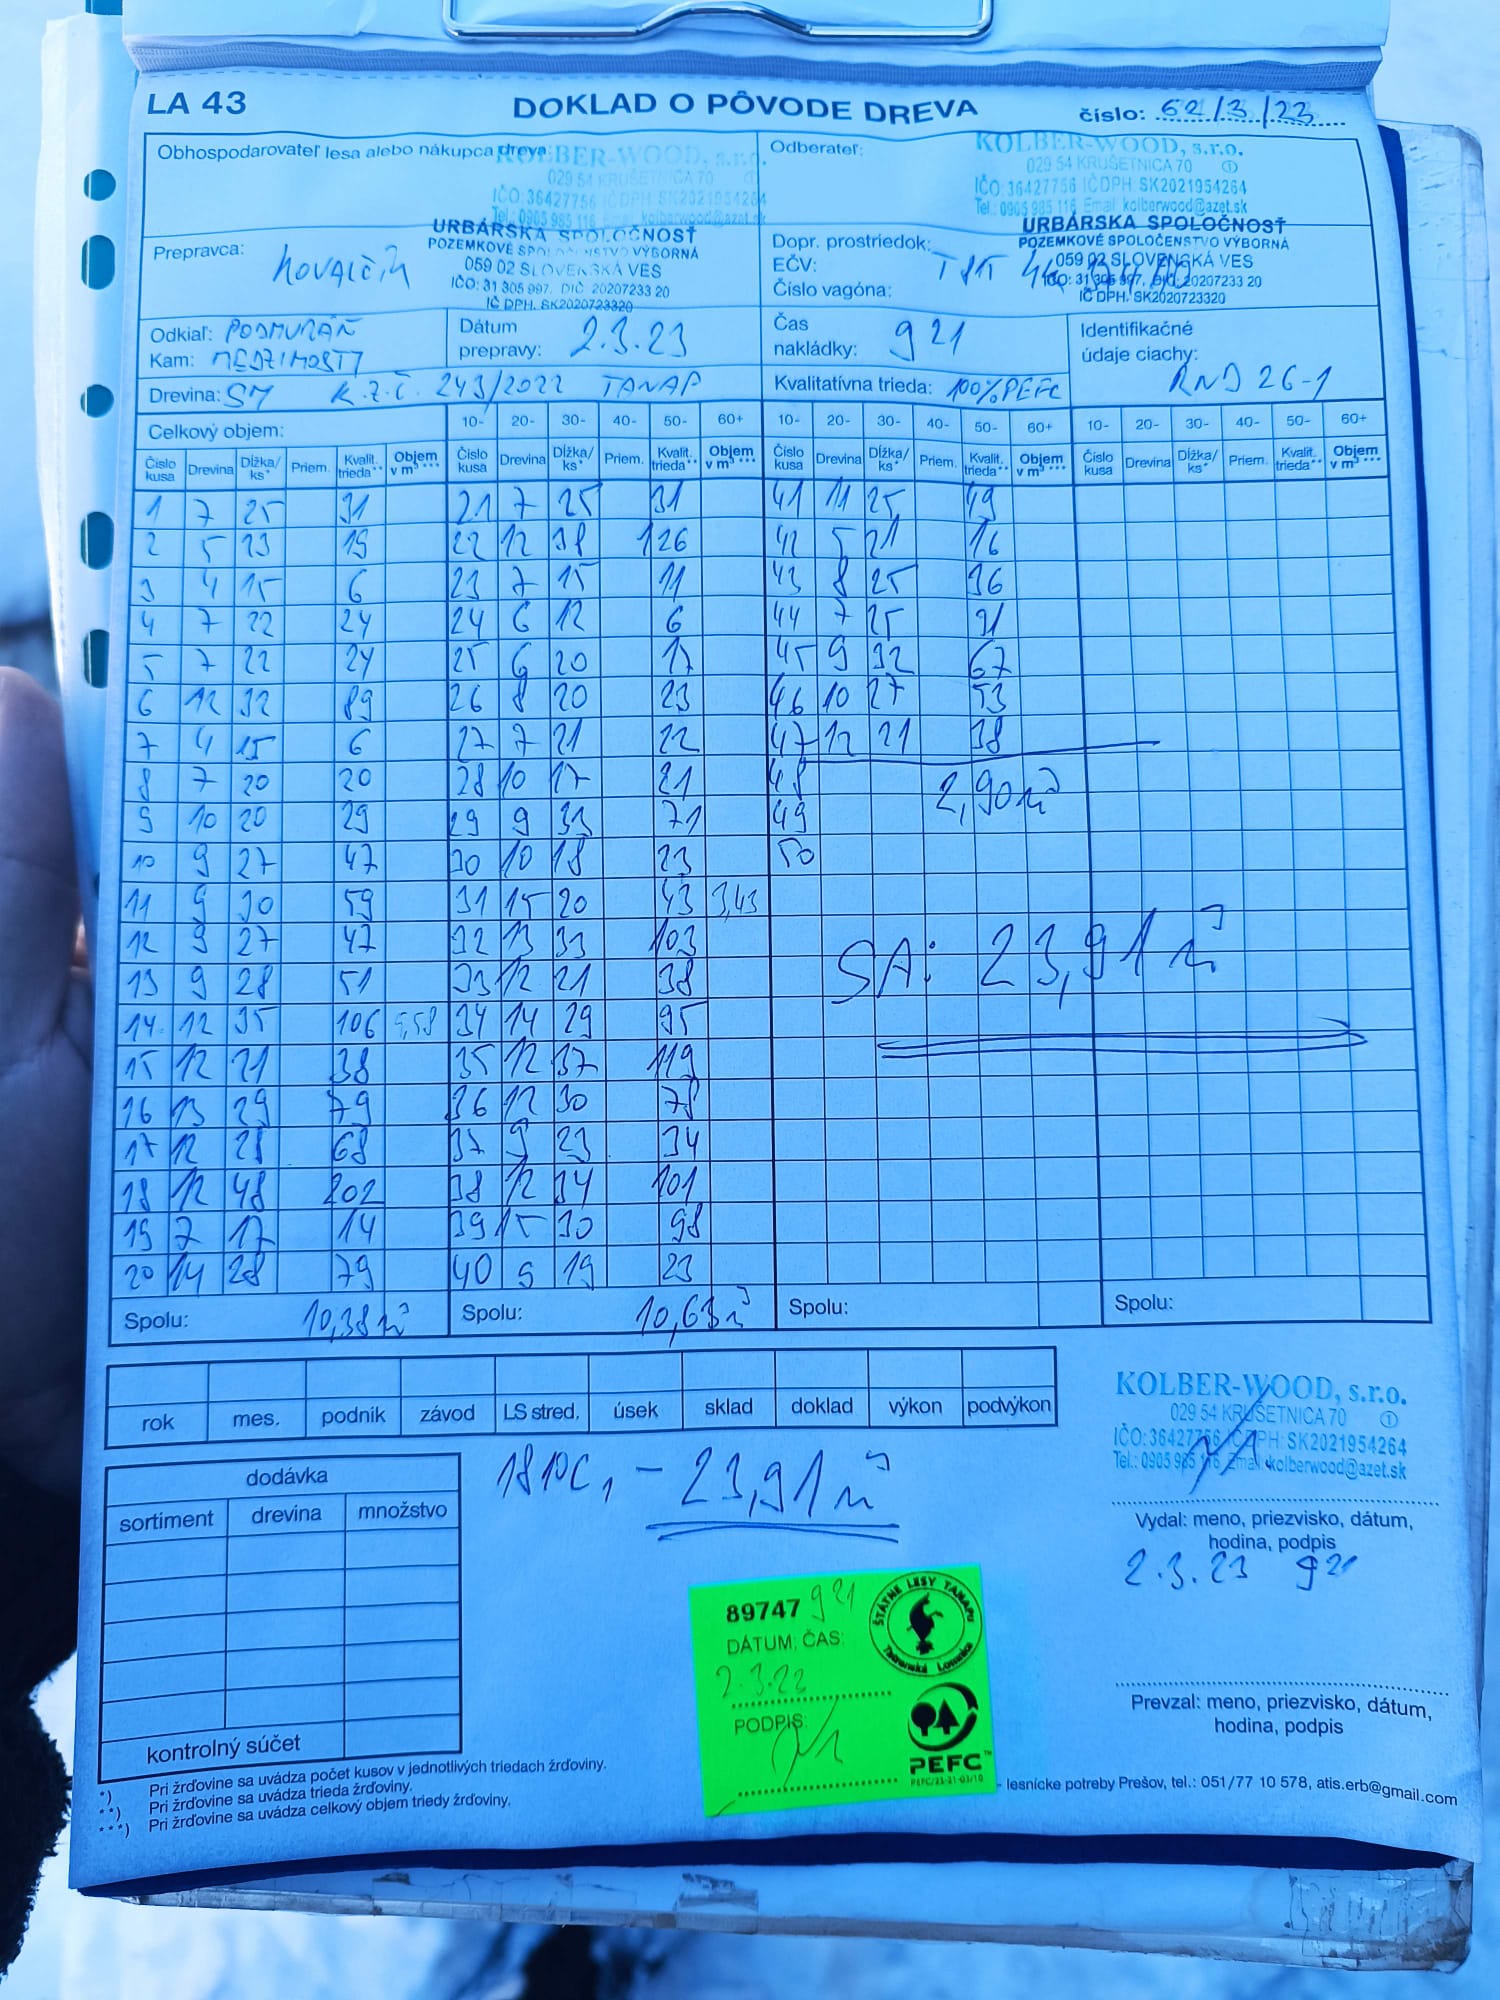 LA 43 DOKLAD O PÔVODE DREVA číslo: 62/3/23
Obhospodarovateľ lesa alebo nákupca dreva:
KOLBER-WOOD, s.r.o.
029 54 KRUŠETNICA 70 1
IČO: 36427756 IČDPH: SK2021954264
Tel.: 0905 985 116 Email: kolberwood@azet.sk
URBÁRSKA SPOLOČNOSŤ
POZEMKOVÉ SPOLOČENSTVO VÝBORNÁ
059 02 SLOVENSKÁ VES
IČO: 31 305 997, DIČ: 20207233 20
IČ DPH. SK2020723320
Odberateľ:
KOLBER-WOOD, s.r.o.
029 54 KRUŠETNICA 70 1
IČO: 36427756 IČDPH: SK2021954264
Tel.: 0905 985 116 Email: kolberwood@azet.sk
URBÁRSKA SPOLOČNOSŤ
POZEMKOVÉ SPOLOČENSTVO VÝBORNÁ
059 02 SLOVENSKÁ VES
IČO: 31 305 997, DIČ: 20207233 20
IČ DPH. SK2020723320
Prepravca: KOVALČÍK
Dopr. prostriedok:
EČV:
Číslo vagóna:
Odkiaľ: PODMURÁŇ
Kam: MEDZIMOSTY
Dátum prepravy: 2.3.23
Čas nakládky: 9 21
Identifikačné údaje ciachy: RND 26-1
Drevina: SM K.Z.Č. 243/2022 TANAP
Kvalitatívna trieda: 100% PEFC
Celkový objem:
10- 20- 30- 40- 50- 60+ 10- 20- 30- 40- 50- 60+ 10- 20- 30- 40- 50- 60+
Číslo kusa Drevina Dĺžka/ks* Priem. Kvalit. trieda** Objem v m³*** Číslo kusa Drevina Dĺžka/ks* Priem. Kvalit. trieda** Objem v m³*** Číslo kusa Drevina Dĺžka/ks* Priem. Kvalit. trieda** Objem v m³*** Číslo kusa Drevina Dĺžka/ks* Priem. Kvalit. trieda** Objem v m³***
1 7 25 31 21 7 25 31 41 11 25 49
2 5 23 19 22 12 38 126 42 5 21 16
3 4 15 6 23 7 15 11 43 8 25 36
4 7 22 24 24 6 12 6 44 7 25 31
5 7 22 24 25 6 20 17 45 9 32 67
6 12 32 89 26 8 20 23 46 10 27 53
7 4 15 6 27 7 21 22 47 12 21 38
8 7 20 20 28 10 17 21 48 2,90 m³
9 10 20 29 29 9 33 71 49
10 9 27 47 30 10 18 23 50
11 9 30 59 31 15 20 43 3,43
12 9 27 47 32 13 33 103
13 9 28 51 33 12 21 38 SA: 23,91 m³
14 12 35 106 5,58 34 14 29 95
15 12 21 38 35 12 37 119
16 13 29 79 36 12 30 78
17 12 28 68 37 9 23 34
18 12 48 202 38 12 34 101
19 7 17 14 39 15 30 98
20 14 28 79 40 9 19 23
Spolu: 10,38 m³ Spolu: 10,63 m³ Spolu: Spolu:
rok mes. podnik závod LS stred. úsek sklad doklad výkon podvýkon
KOLBER-WOOD, s.r.o.
029 54 KRUŠETNICA 70 1
IČO: 36427756 IČDPH: SK2021954264
Tel.: 0905 985 116 Email: kolberwood@azet.sk
Vydal: meno, priezvisko, dátum,
hodina, podpis
2.3.23 9 21
dodávka
sortiment drevina množstvo
kontrolný súčet
23,91 m³
89747 9 21
DÁTUM, ČAS:
2.3.23
PODPIS:
ŠTÁTNE LESY TANAPU
Tatranská Lomnica
PEFC™
PEFC/23-21-03/10
Prevzal: meno, priezvisko, dátum,
hodina, podpis
*) Pri žrďovine sa uvádza počet kusov v jednotlivých triedach žrďoviny.
**) Pri žrďovine sa uvádza trieda žrďoviny.
***) Pri žrďovine sa uvádza celkový objem triedy žrďoviny.
- lesnícke potreby Prešov, tel.: 051/77 10 578, atis.erb@gmail.com